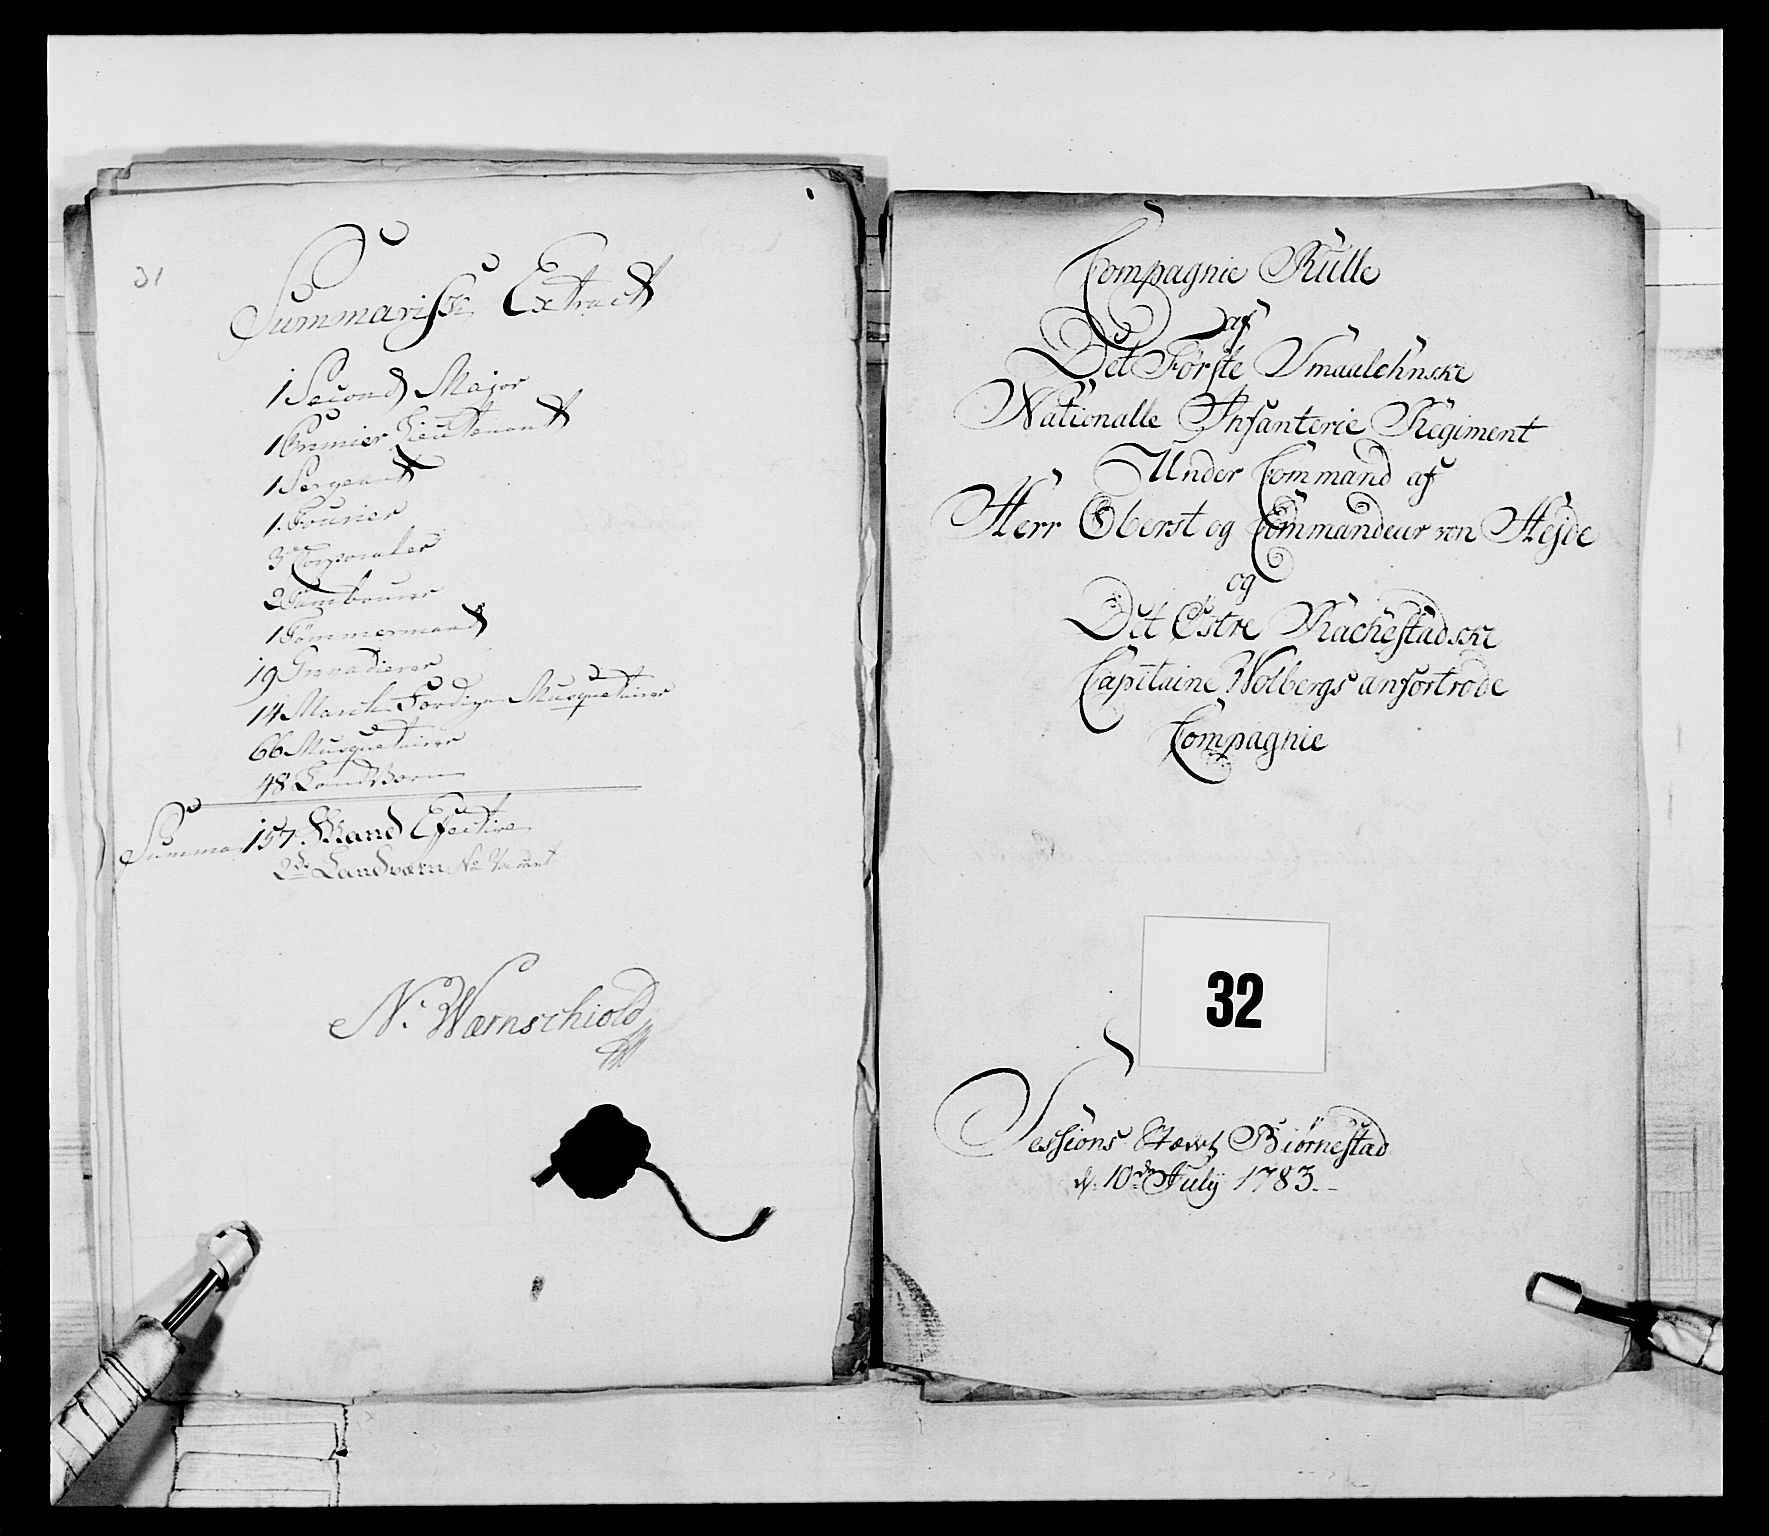 31
Summarisk Extract
1 Second Major
1 Premier Lieutenant
1 Sergeant
1 Fourier
3 Corporaler
2 Tambourer
1 Tömmermand
19 Grenadierer
14 March Færdige Musquetairer
66 Musquetairer
48 LandVærn
Summa 157 Mand Efective
2de Landværn No Vacant
N. Wærnschiold
Compagnie Rulle
af
Det Første Smaalehnske
Nationalle Infanterie Regiment
Under Command af
Herr Oberst og Commandeur von Hejde
og
Det Østre Rackestadske
Capitaine Wolbergs anfortrode
Compagnie
32
Sessions Stædet Biørnestad
d. 10de July 1783.